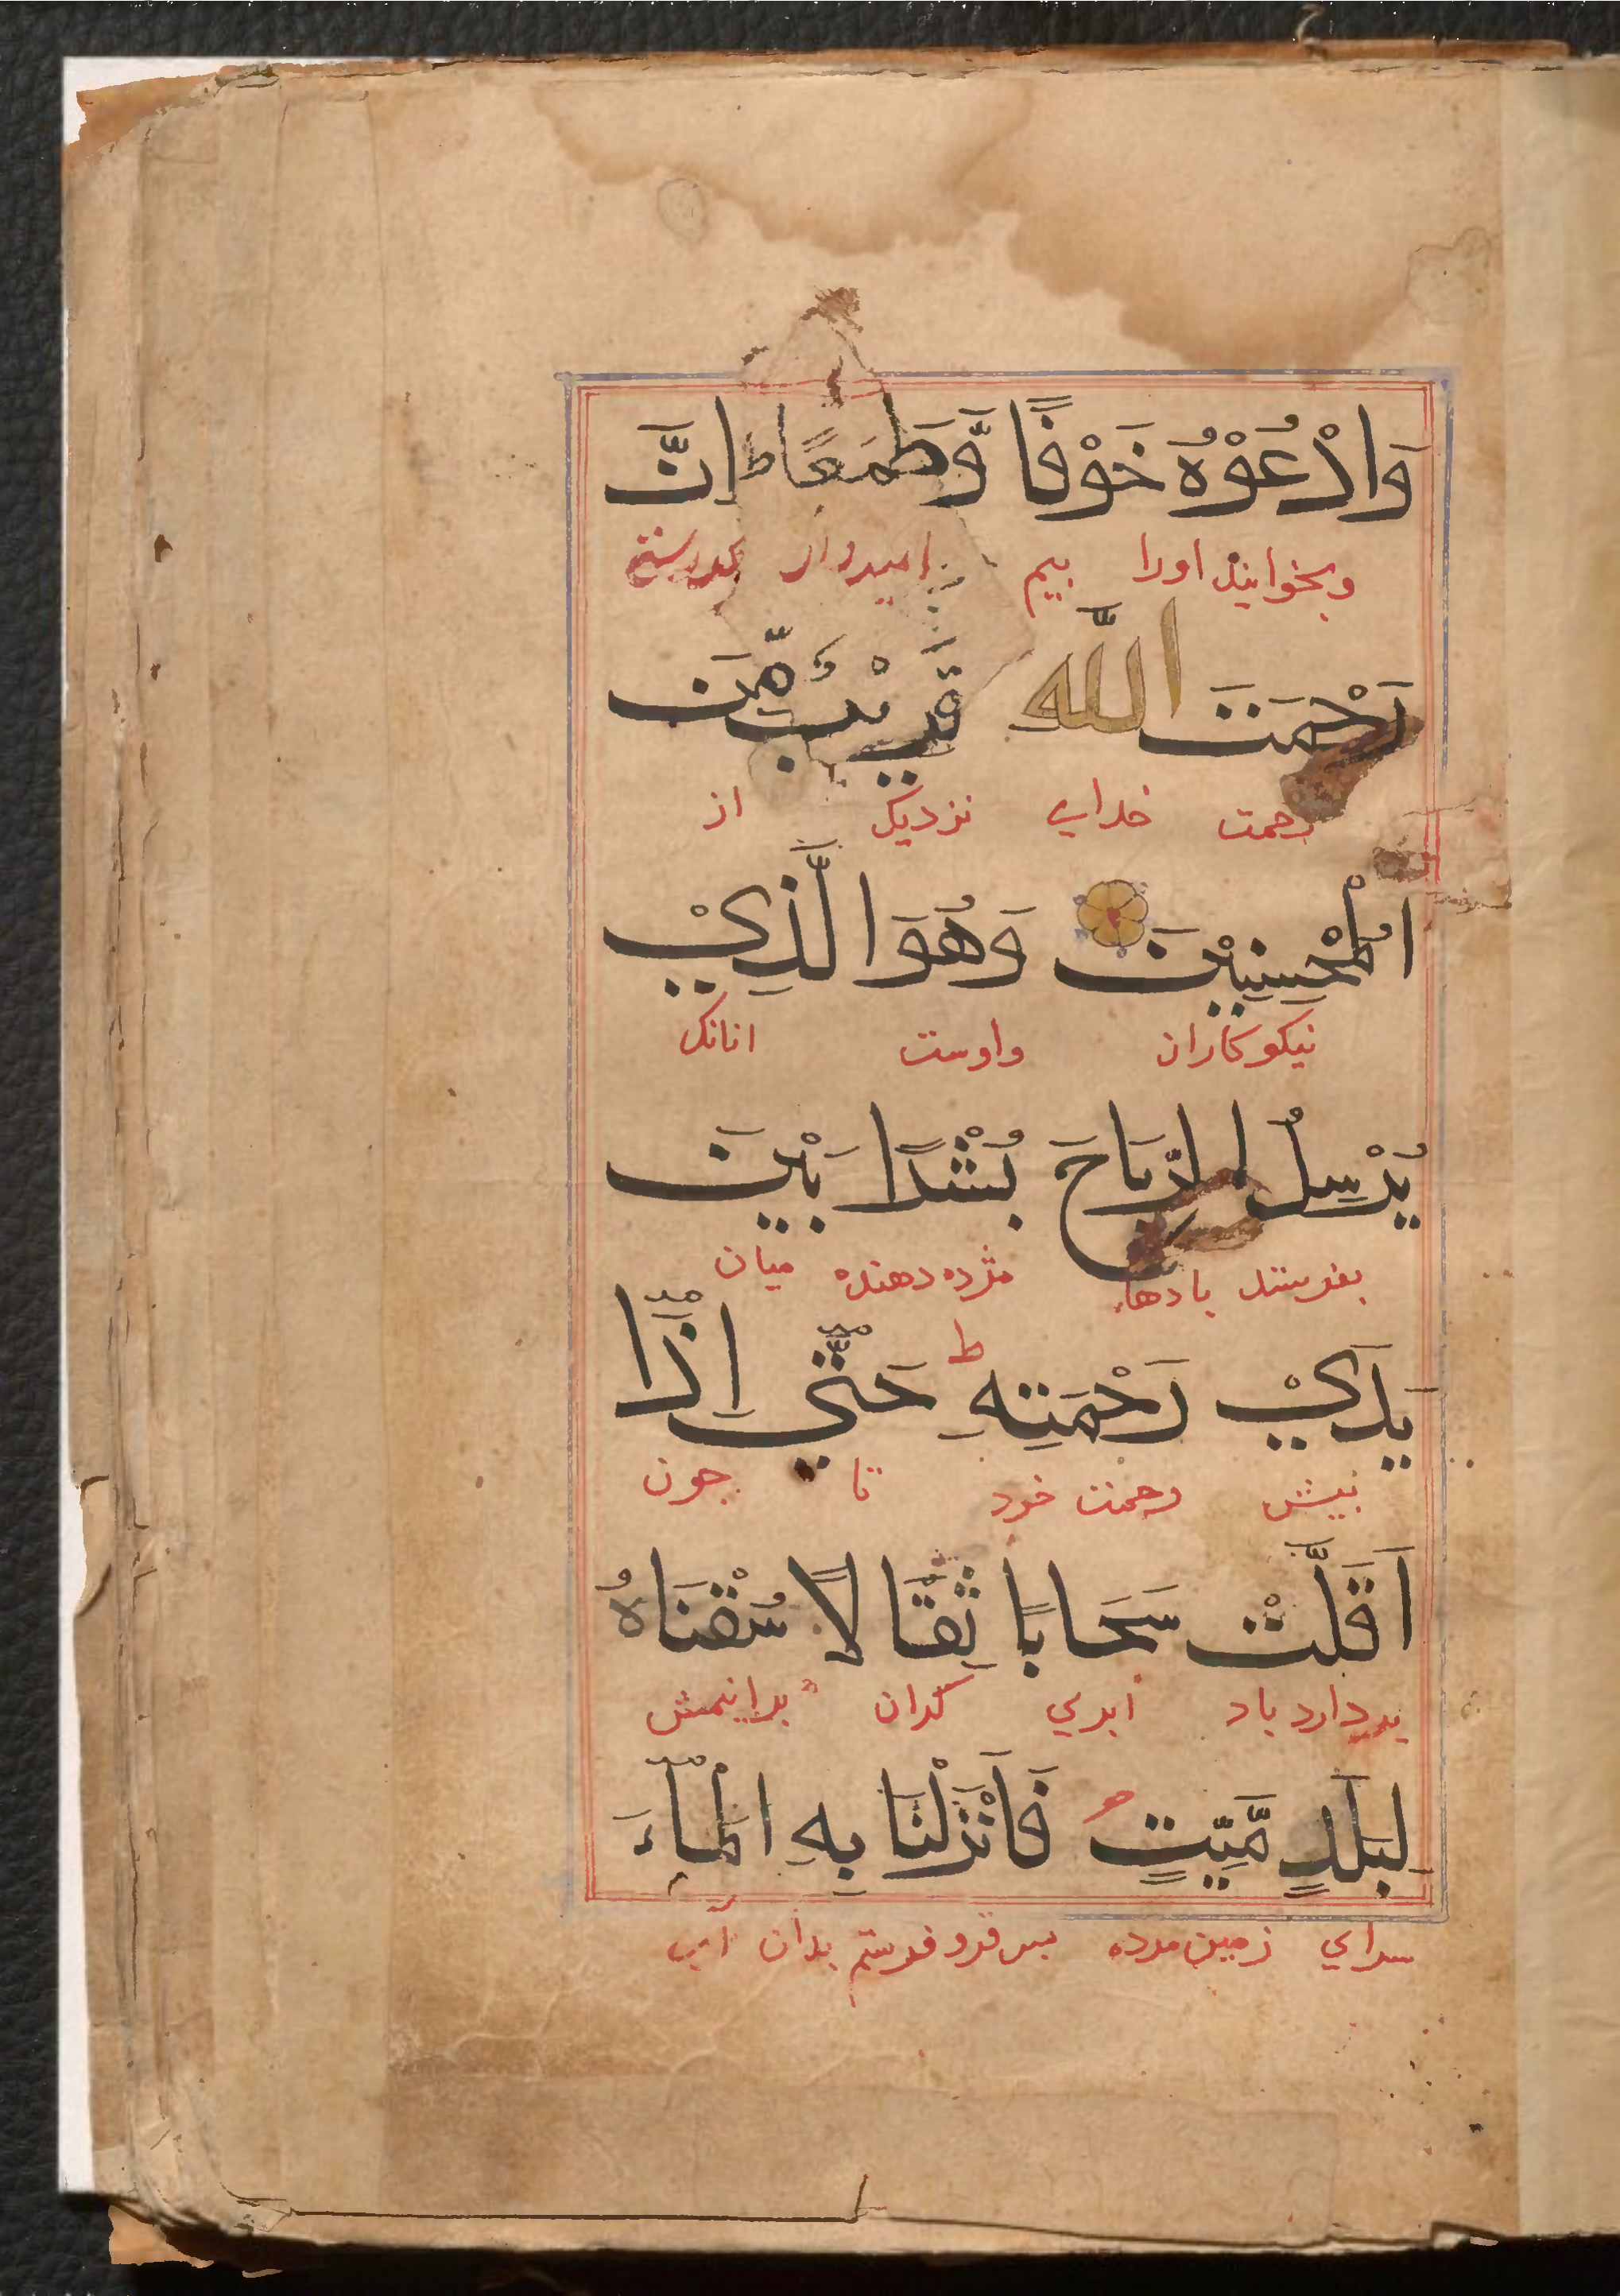 وَادْعُوْهُ خَوْفًا وَّطَمَعًا ط اِنَّ
وبخوانید اورا بیم امیدوار بدرستی
رَحْمَتَ اللّٰه قَرِيْبٌ مِّنَ
رحمت خدای نزدیک از
الْمُحْسِنِيْنَ وَهُوَ الَّذِيْ
نیکوکاران واوست انانک
يُرْسِلُ الرِّيَاحَ بُشْرًا بَيْنَ
بفرستد بادها مژده دهنده میان
يَدَيْ رَحْمَتِهِ ط حَتَّي اِذَا
پیش رحمت خود تا جون
اَقَلَّتْ سَحَابًا ثِقَالًا سُقْنَاهُ
بردارد باد ابری کران برانیمش
لِبَلَدٍ مَّيِّتٍ فَاَنْزَلْنَا بِهِ الْمَآءَ
سرای زمین مرده بس فرو فرستم بدان آب